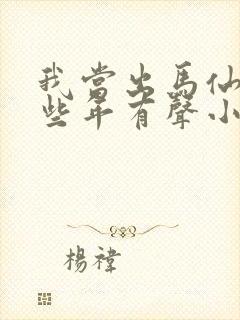 我當出馬仙
些年有聲小
楊禕